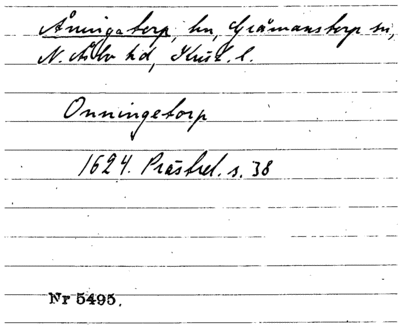 Åningatorp, hn, Gråmanstorp sn,
N. Åsbo hd, Krist. l.
Onningetorp
1624. Prästrel. s. 38
Nr 5495.